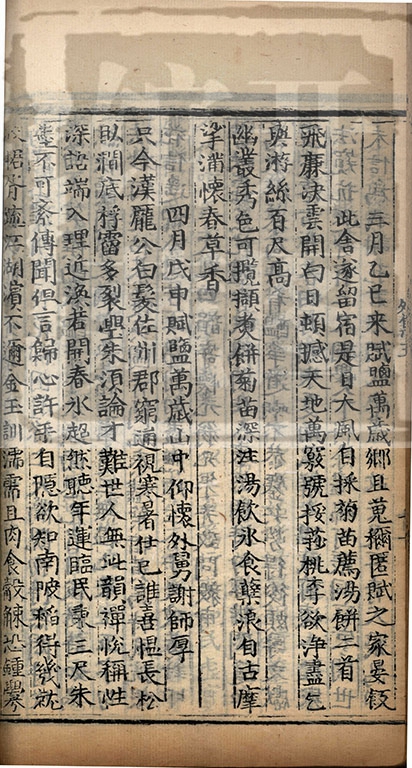 三月乙巳來賦鹽萬歲鄉且蒐獮匿賦之家晏飯
此舍遂留宿是日大風自採菊苗薦湯餅二首
飛廉決雲開白日頓撼天地萬竅號挼莎桃李欲淨盡乞
與游絲百尺高
幽叢秀色可攬擷煮餅菊苗深注湯飲冰食蘗浪自古摩
挲滿懷春草香
四月戊申賦鹽萬歲山中仰懷外舅謝師厚
只今漢龐公白髮佐州郡窮通視寒暑仕已誰喜慍長松
臥澗底桴霤多裂璺未須論才難世人無此韻禪悅稱性
深語端入理近渙若開春氷超然聽年運臨民秉三尺朱
墨不可紊傳聞但言歸心許手自隱欲知南陂稻得幾就
胥疏江湖濱不邇金玉訓濡需且肉食觳觫恐鍾釁